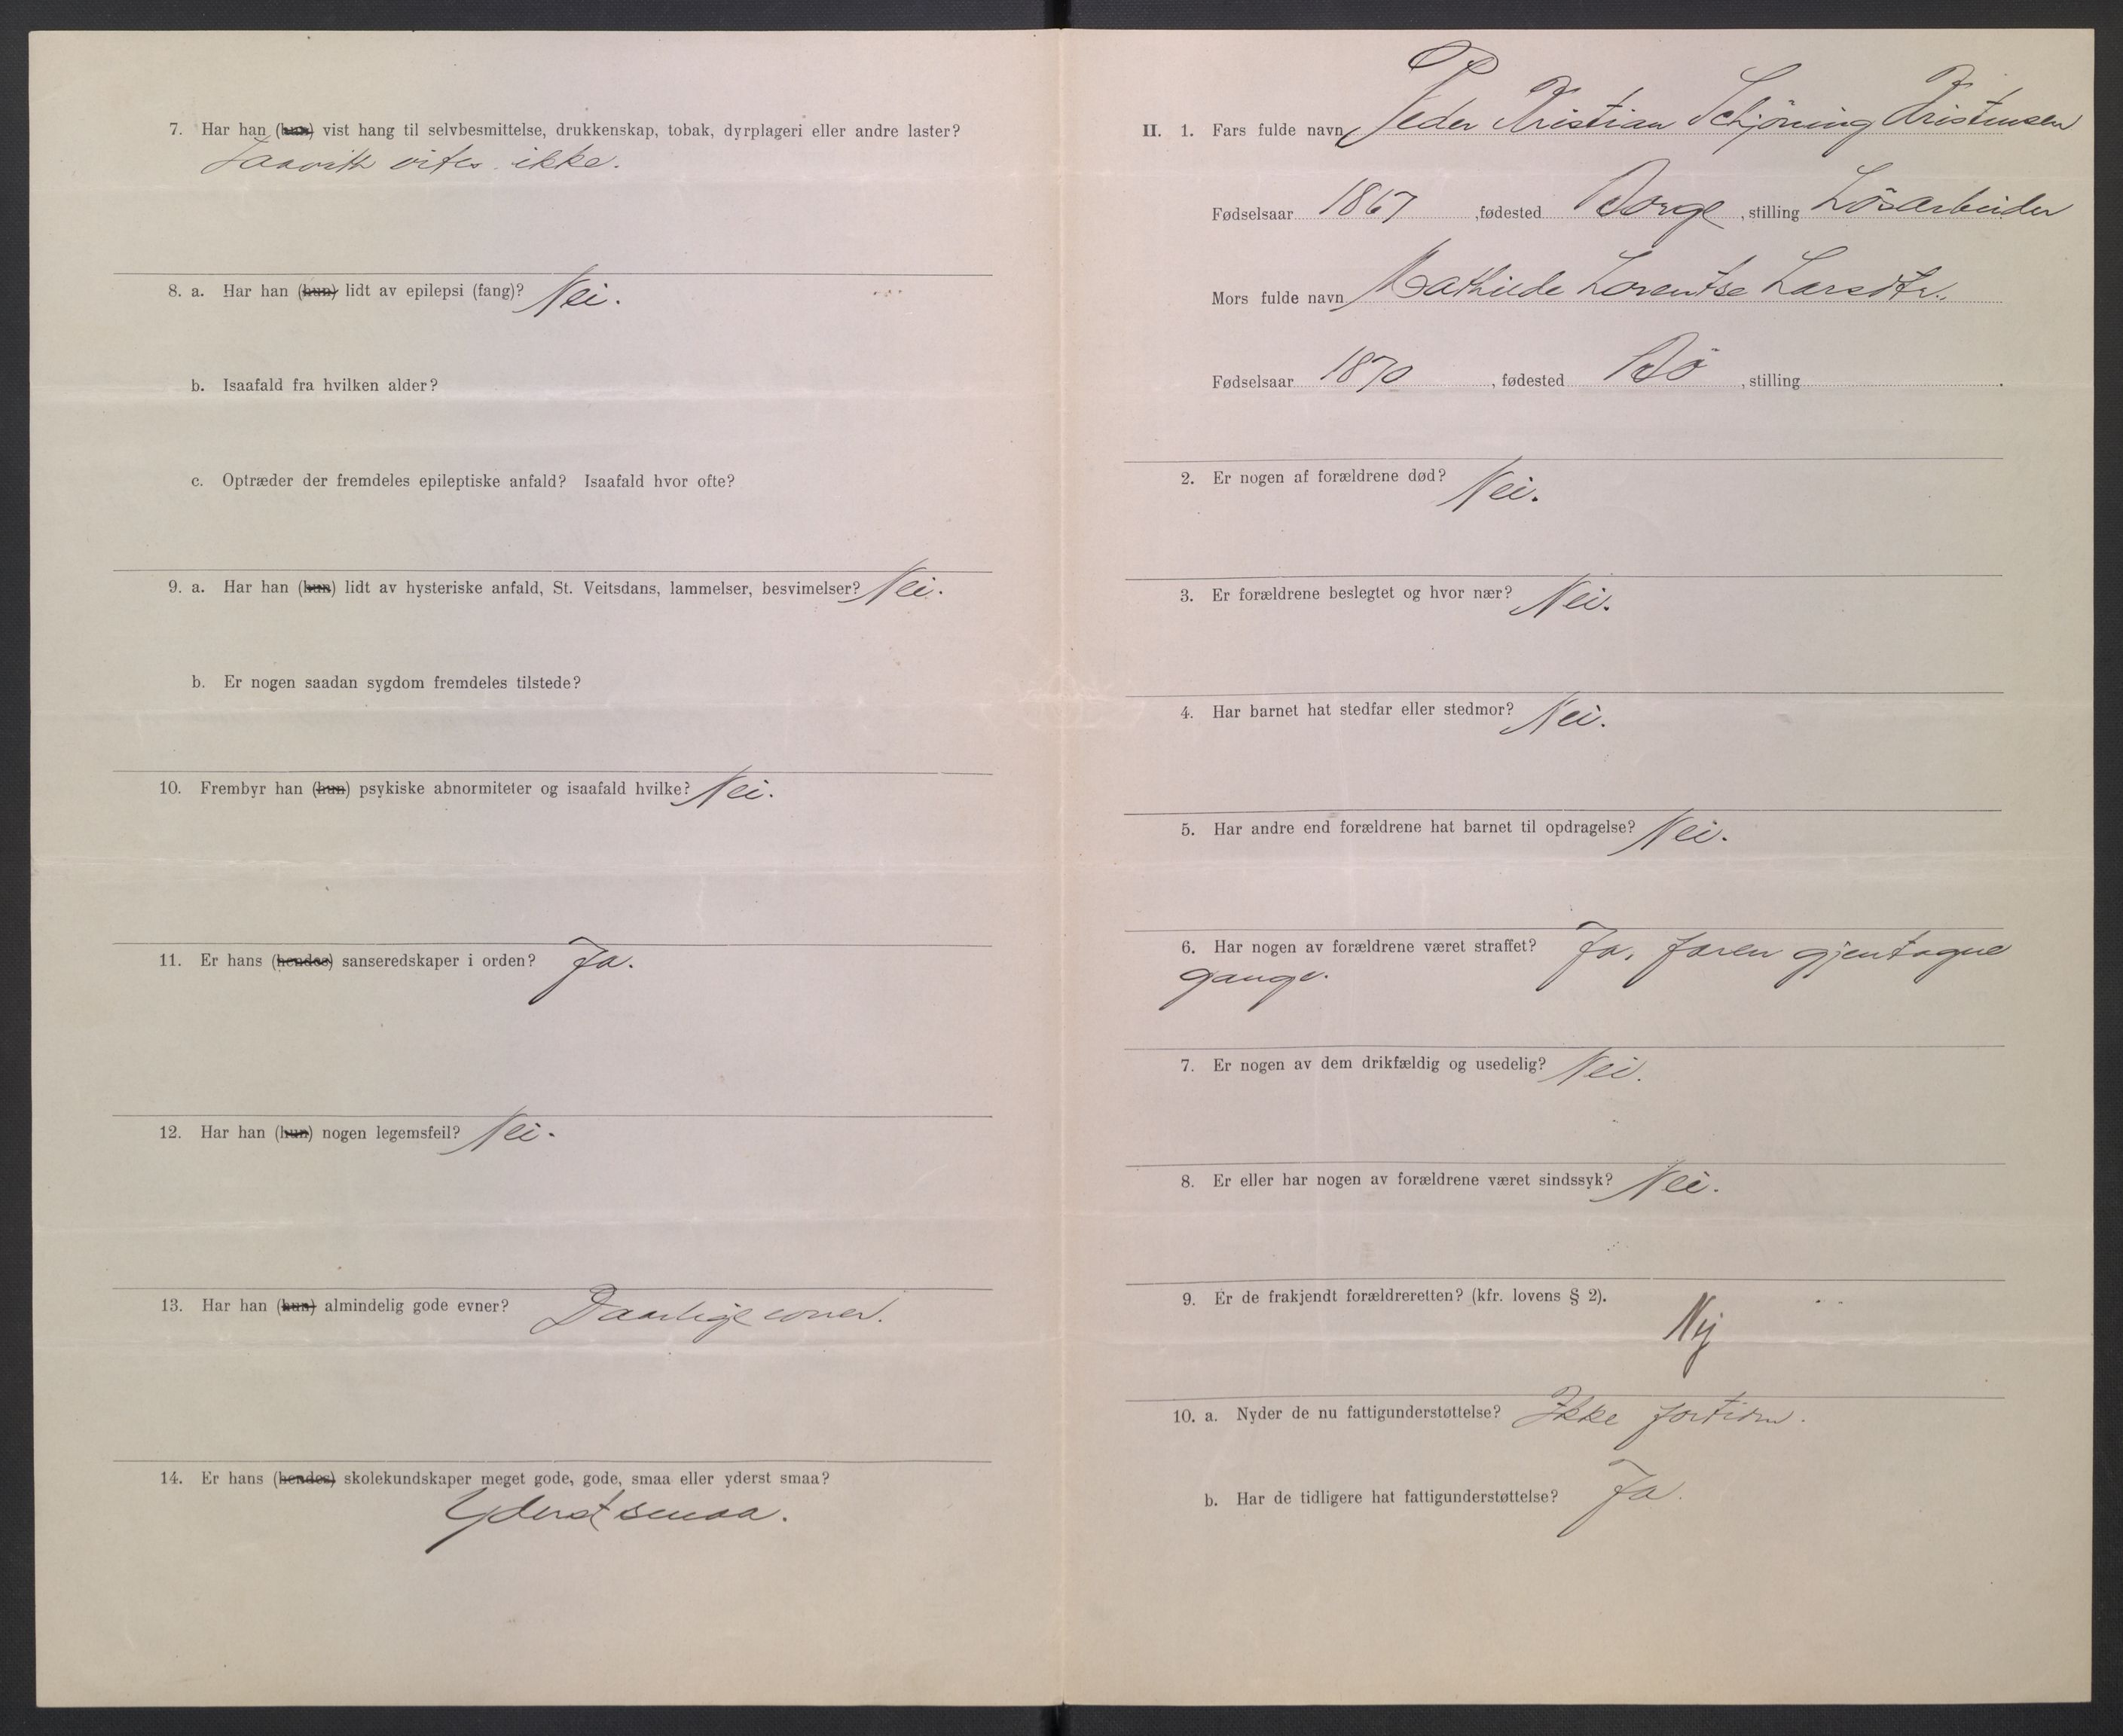 7. Har han (hun) vist hang til selvbesmittelse, drukkenskap, tobak, dyrplageri eller andre laster?
Saavitt vites ikke.
8. a. Har han (hun) lidt av epilepsi (fang)? Nei.
b. Isaafald fra hvilken alder?
c. Optræder der fremdeles epileptiske anfald? Isaafald hvor ofte?
9. a. Har han (hun) lidt av hysteriske anfald, St. Veitsdans, lammelser, besvimelser? Nei.
b. Er nogen saadan sygdom fremdeles tilstede?
10. Frembyr han (hun) psykiske abnormiteter og isaafald hvilke? Nei.
11. Er hans (hendes) sanseredskaper i orden? Ja.
12. Har han (hun) nogen legemsfeil? Nei.
13. Har han (hun) almindelig gode evner? Daarlige evner.
14. Er hans (hendes) skolekundskaper meget gode, gode, smaa eller yderst smaa?
Yderst smaa.
II. 1. Fars fulde navn Peder Kristian Schjöning Kristensen
Fødselsaar 1867, fødested Borge, stilling Lösarbeider
Mors fulde navn Mathilde Lorentse Larsdtr.
Fødselsaar 1870, fødested Bö, stilling
2. Er nogen af forældrene død? Nei.
3. Er forældrene beslegtet og hvor nær? Nei.
4. Har barnet hat stedfar eller stedmor? Nei.
5. Har andre end forældrene hat barnet til opdragelse? Nei.
6. Har nogen av forældrene været straffet? Ja, faren gjentagne
gange.
7. Er nogen av dem drikfældig og usedelig? Nei.
8. Er eller har nogen av forældrene været sindssyk? Nei.
9. Er de frakjendt forældreretten? (kfr. lovens § 2).
Nej
10. a. Nyder de nu fattigunderstøttelse? Ikke fortiden.
b. Har de tidligere hat fattigunderstøttelse? Ja.